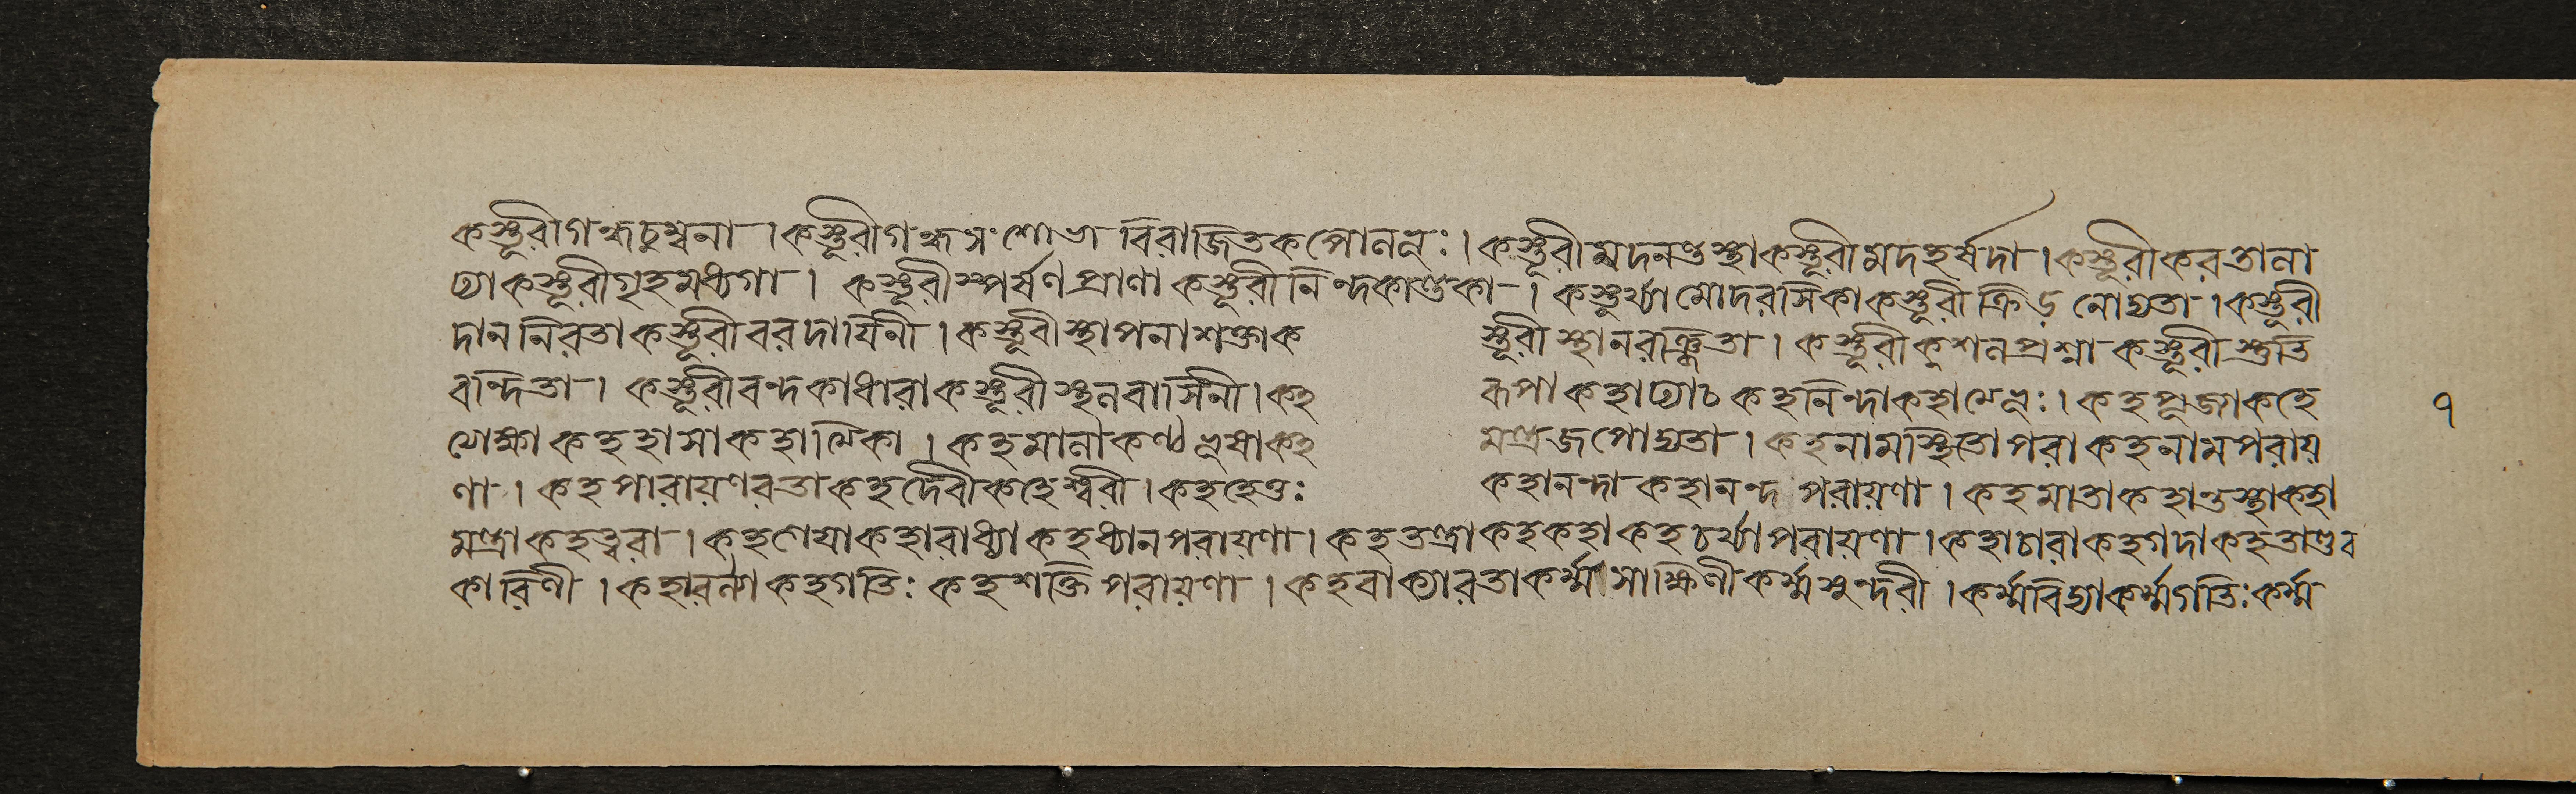 কস্তূরীগন্ধচুম্বনা । কস্তূরীগন্ধসংশোভা বিরাজিতকপোলভূঃ । কস্তূরীমদনান্তস্থাকস্তূরীমদহর্ষদা । কস্তূরীকরতানা
ঢ্যাকস্তূরীগৃহমধ্যগা । কস্তূরীস্পর্ষণপ্রাণা কস্তূরীনিন্দকান্তকা । কস্তুর্য্যামোদরসিকাকস্তূরীক্রিড়নোদ্যতা । কস্তূরী
দাননিরতাকস্তূরীবরদায়িনী । কস্তূরীস্থাপনাশক্তাক স্তূরীস্থানরঞ্জিতা । কস্তূরীকুশলপ্রশ্নাকস্তূরীস্তুতি
বন্দিতা । কস্তূরীবন্দকাধারাকস্তূরীস্থলবাসিনী । কহ রূপাকহাঢ্যাচ কহনিন্দাকহাত্মভূঃ । কহপূজাকহে
যোক্ষাকহহাসাকহাত্মিকা । কহমালাকণ্ঠভূষাকহ মন্ত্রজপোদ্যতা । কহনামস্থিতাপরাকহনামপরায়
ণা । কহপারায়ণরতাকহদেবীকহেশ্বরী । কহহেতুঃ কহানন্দাকহানন্দপরায়ণা । কহমাতাকহান্তস্থাকহা
মন্ত্রাকহত্বরা । কহগেয়াকহারাধ্যাকহধ্যানপরায়ণা । কহতন্ত্রাকহকহাকহচর্য্যাপরায়ণা । কহাচারাকহগদাকহতাণ্ডব
কারিণী । কহারণ্যাকহগতিঃ কহশক্তিপরায়ণা । কহবাক্যরতাকর্ম্মসাক্ষিণীকর্ম্মসুন্দরী । কর্ম্মবিদ্যাকর্ম্মগতিঃকর্ম্ম
৭